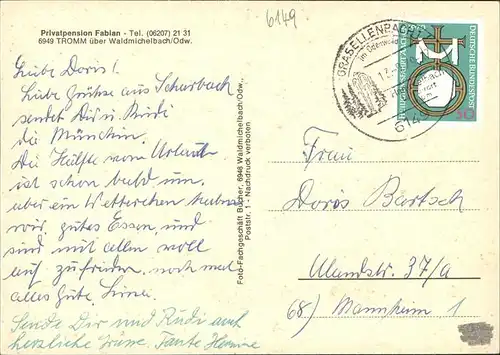 6149
Privatpension Fabian - Tel. (06207) 21 31
6949 TROMM über Waldmichelbach/Odw.
Liebe Doris!
Liebe Grüße aus Scharbach
sendet Dir u. Rudi
die
Die Hälfte vom Urlaub
ist schon bald um,
aber ein Wetterchen haben
wir, gutes Essen, und
sind mit allem voll
auf zufrieden, noch mal
alles Gute,
Sende Dir und Rudi auch
herzliche Grüsse. Tante
Foto-Fachgeschäft Bucher, 6948 Waldmichelbach/Odw.
Poststr. 1 - Nachdruck verboten
GRASELLENBACH
im Odenwald
6149
DEUTSCHE BUNDESPOST
Frau
Doris Bartsch
Uhlandstr. 37/a
68) Mannheim 1